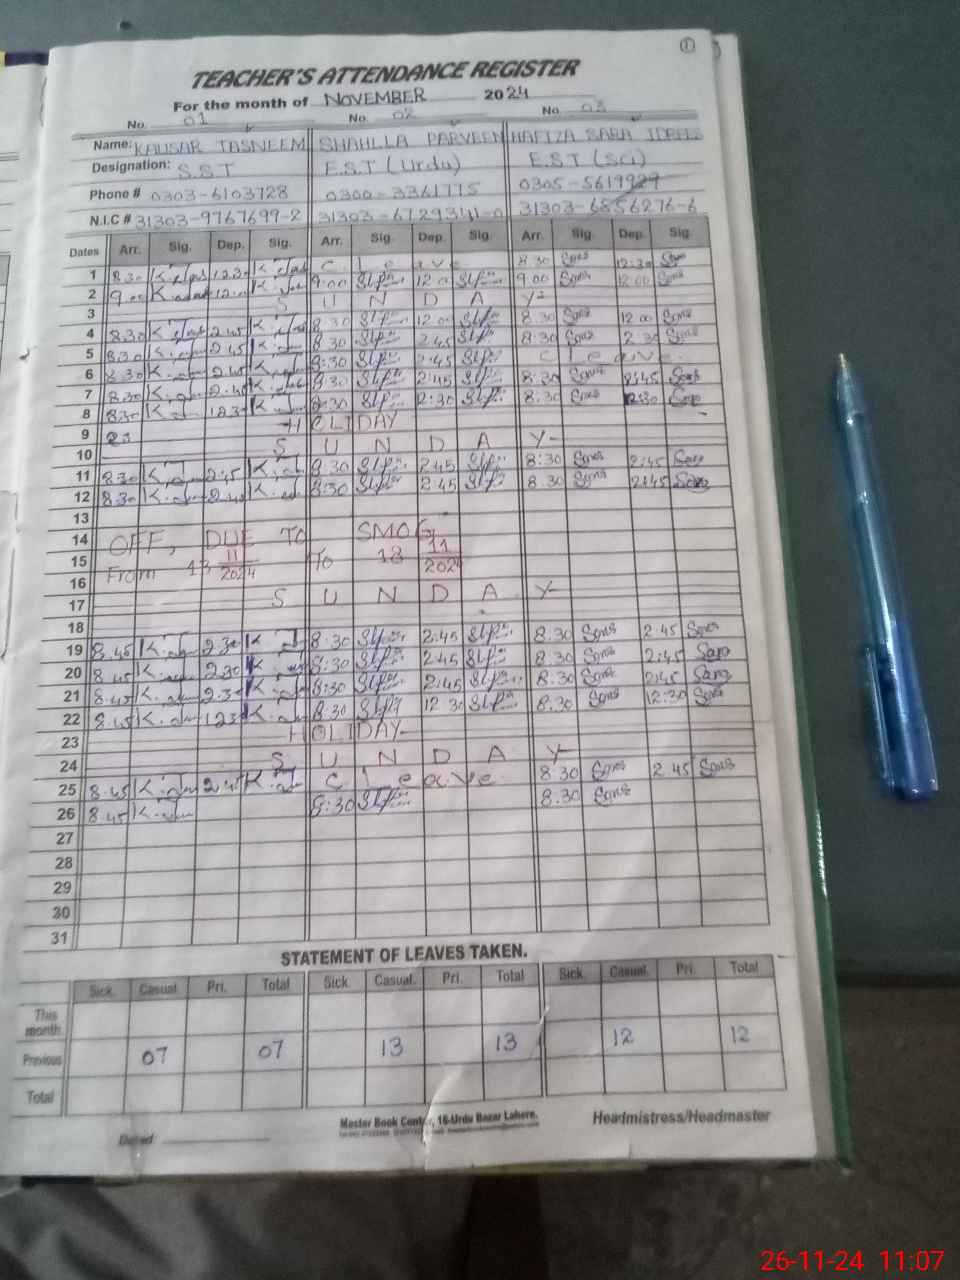 1
TEACHER'S ATTENDANCE REGISTER
For the month of NOVEMBER 2024
No. 01 No. 02 No. 03
Name: KAUSAR TASNEEM SHAHLLA PARVEEN HAFIZA SABA IDREES
Designation: S.S.T E.S.T (Urdu) E.S.T (Sci)
Phone # 0303-6103728 0300-3361775 0305-5619929
N.I.C # 31303-9767699-2 31303-6729341-0 31303-6856276-6
Dates Arr. Sig. Dep. Sig. Arr. Sig. Dep. Sig. Arr. Sig. Dep. Sig.
1 8.30 12.30 C. leave 8 30 12:30
2 9.00 12.00 9:00 12 00 9.00 12.00
3 S U N D A Y
4 8.30 2.45 8 30 12 00 8.30 12 00
5 8.30 2.45 8 30 2 45 8:30 2 30
6 8.30 2.45 8:30 2:45 C Leave
7 8.30 2.45 8:30 2:45 8:30 2:45
8 8.30 12.30 8:30 12:30 8.30 12:30
9 HOLIDAY
10 S U N D A Y
11 8.30 2.45 8:30 2.45 8:30 2:45
12 8.30 2.45 8:30 2.45 8 30 2:45
13
14 OFF, DUE TO SMOG
15 From 13 11/2024 To 18 11/2024
16
17 S U N D A Y
18
19 8.45 2.30 8:30 2:45 8.30 2:45
20 8.45 2.30 8:30 2:45 8.30 2:45
21 8.45 2.30 8:30 2:45 8.30 2:45
22 8.45 12.30 8:30 12 30 8.30 12:30
23 HOLIDAY
24 S U N D A Y
25 8.45 2.45 C leave 8:30 2 45
26 8.45 8:30 8:30
27
28
29
30
31
STATEMENT OF LEAVES TAKEN.
Sick. Casual. Pri. Total Sick. Casual. Pri. Total Sick. Casual. Pri. Total
This month.
Previous 07 07 13 13 12 12
Total
Dated Master Book Center, 16-Urdu Bazar Lahore. Headmistress/Headmaster
26-11-24 11:07